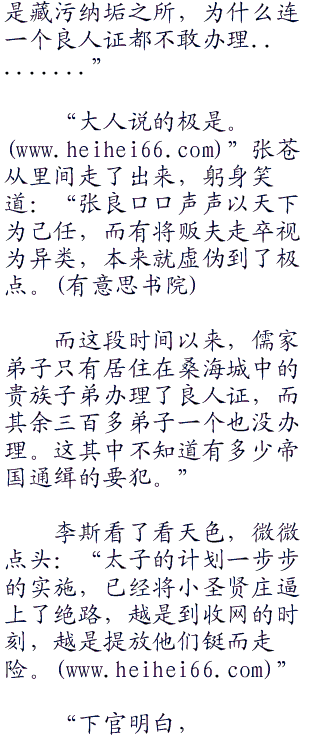 是藏污纳垢之所，为什么连
一个良人证都不敢办理..
.......”
“大人说的极是。
(www.heihei66.com)”张苍
从里间走了出来，躬身笑
道：“张良口口声声以天下
为己任，而有将贩夫走卒视
为异类，本来就虚伪到了极
点。(有意思书院)
而这段时间以来，儒家
弟子只有居住在桑海城中的
贵族子弟办理了良人证，而
其余三百多弟子一个也没办
理。这其中不知道有多少帝
国通缉的要犯。”
李斯看了看天色，微微
点头：“太子的计划一步步
的实施，已经将小圣贤庄逼
上了绝路，越是到收网的时
刻，越是提放他们铤而走
险。(www.heihei66.com)”
“下官明白，